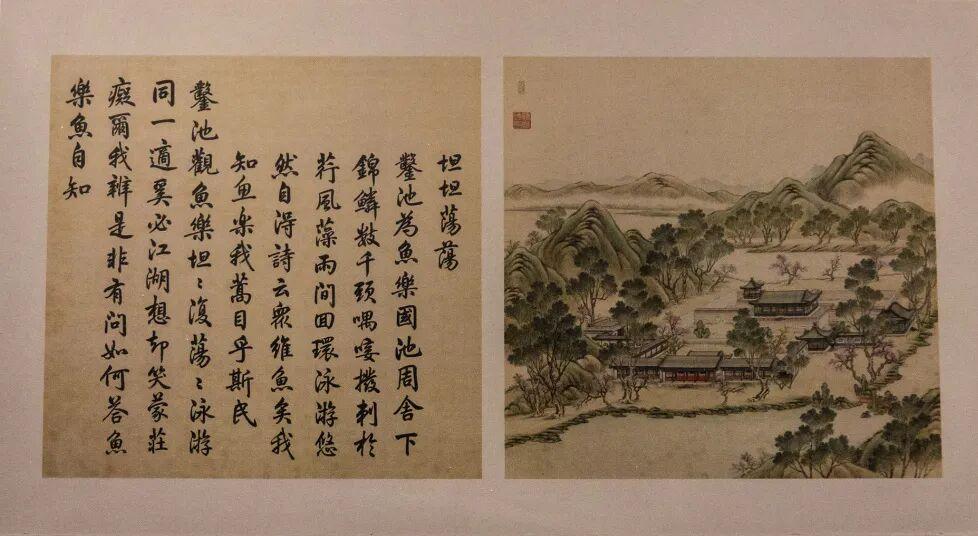 坦坦蕩蕩
鑿池為魚樂國池周舍下
錦鱗数千頭喁唼撥刺於
荇風藻雨間回環泳游悠
然自得詩云眾維魚矣我
知魚楽我蒿目乎斯民
鑿池觀魚樂坦〻復蕩〻泳游
同一適奚必江湖想却笑蒙莊
癡爾我辨是非有问如何答魚
樂魚自知